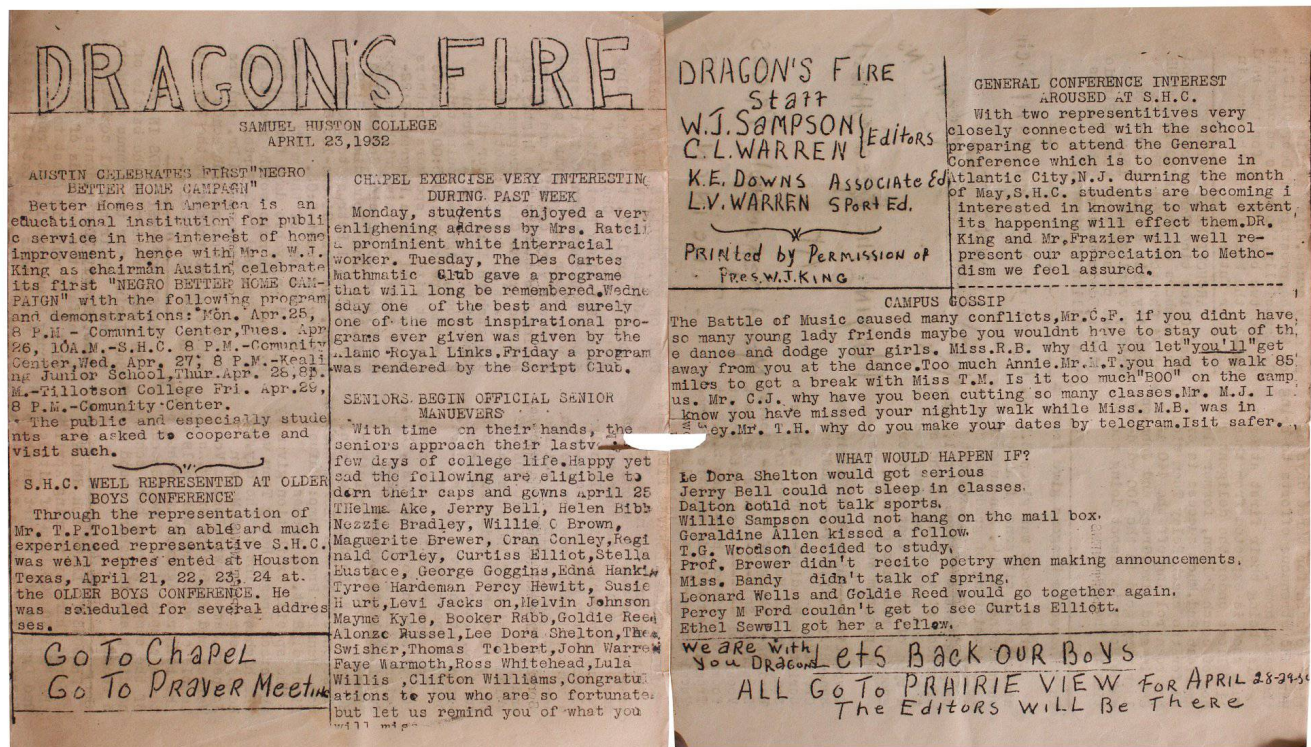 DRAGON'S FIRE
SAMUEL HUSTON COLLEGE
APRIL 23,1932
AUSTIN CELEBRATES FIRST"NEGRO
BETTER HOME CAMPAGN"
Better Homes in America is an
educational institution for publi
c service in the interest of home
improvement, hence with Mrs. W.J.
King as chairman Austin celebrate
its first "NEGRO BETTER HOME CAM-
PAIGN" with the following program
and demonstrations: Mon. Apr.25,
8 P.M - Comunity Center,Tues. Apr
26, 10A.M.-S.H.C. 8 P.M.-Comunity
Center,Wed. Apr. 27; 8 P.M.-Keali
ng Junior School,Thur.Apr. 28,8P.
M.-Tillotson College Fri. Apr.29,
8 P.M.-Comunity Center.
The public and especially stude
nts are asked to cooperate and
visit such.
S.H.C. WELL REPRESENTED AT OLDER
BOYS CONFERENCE
Through the representation of
Mr. T.P.Tolbert an able and much
experienced representative S.H.C.
was well represented at Houston
Texas, April 21, 22, 23, 24 at.
the OLDER BOYS CONFERENCE. He
was scheduled for several addres
ses.
GO TO CHAPEL
GO TO PRAYER MEETING
CHAPEL EXERCISE VERY INTERESTING
DURING PAST WEEK
Monday, students enjoyed a very
enlighening address by Mrs. Ratcli
a prominient white interracial
worker. Tuesday, The Des Cartes
Mathmatic Club gave a programe
that will long be remembered.Wedne
sday one of the best and surely
one of the most inspirational pro-
grams ever given was given by the
Alamo Royal Links.Friday a program
was rendered by the Script Club.
SENIORS BEGIN OFFICIAL SENIOR
MANUEVERS
With time on their hands, the
seniors approach their last
few days of college life.Happy yet
sad the following are eligible to
dorn their caps and gowns April 25
THelma Ake, Jerry Bell, Helen Bibb
Nezzie Bradley, Willie C Brown,
Maguerite Brewer, Cran Conley,Regi
nald Corley, Curtiss Elliot,Stella
Eustace, George Goggins,Edna Hankin
Tyree Hardeman Percy Hewitt, Susie
H urt,Levi Jacks on,Melvin Johnson
Mayme Kyle, Booker Rabb,Goldie Reed
Alonzo Russel,Lee Dora Shelton,
Swisher,Thomas Tolbert,John Warren
Faye Warmoth,Ross Whitehead,Lula
Willis ,Clifton Williams,Congratul
ations to you who are so fortunate.
but let us remind you of what you
will
DRAGON'S FIRE
Staff
W.J.SAMPSON
C.L.WARREN } Editors
K.E. DOWNS ASSOCIATE Ed.
L.V. WARREN SPort Ed.
PRINTED by PERMISSION OF
Pres.W.J.KING
GENERAL CONFERENCE INTEREST
AROUSED AT S.H.C.
With two representitives very
closely connected with the school
preparing to attend the General
Conference which is to convene in
Atlantic City,N.J. durning the month
of May,S.H.C. students are becoming i
interested in knowing to what extent
its happening will effect them.DR.
King and Mr.Frazier will well re-
present our appreciation to Metho-
dism we feel assured.
CAMPUS GOSSIP
The Battle of Music caused many conflicts,Mr.C.F. if you didnt have
so many young lady friends maybe you wouldnt have to stay out of th
e dance and dodge your girls. Miss.R.B. why did you let"you'll"get
away from you at the dance.Too much Annie.Mr.M.T.you had to walk 85
miles to get a break with Miss T.M. Is it too much"BOO" on the camp
us. Mr. C.J. why have you been cutting so many classes.Mr. M.J. I
know you have missed your nightly walk while Miss. M.B. was in
Mr. T.H. why do you make your dates by telegram.Isit safer.
WHAT WOULD HAPPEN IF?
Le Dora Shelton would get serious
Jerry Bell could not sleep in classes.
Dalton could not talk sports.
Willie Sampson could not hang on the mail box.
Geraldine Allen kissed a fellow.
T.G. Woodson decided to study.
Prof. Brewer didn't recite poetry when making announcements.
Miss. Bandy didn't talk of spring.
Leonard Wells and Goldie Reed would go together again.
Percy M Ford couldn't get to see Curtis Elliott.
Ethel Sewell got her a fellow.
We are with you Dragons Lets Back OUR BOYS
ALL GO TO PRAIRIE VIEW FOR APRIL 28-29-30
The EditoRS WILL BE ThERE